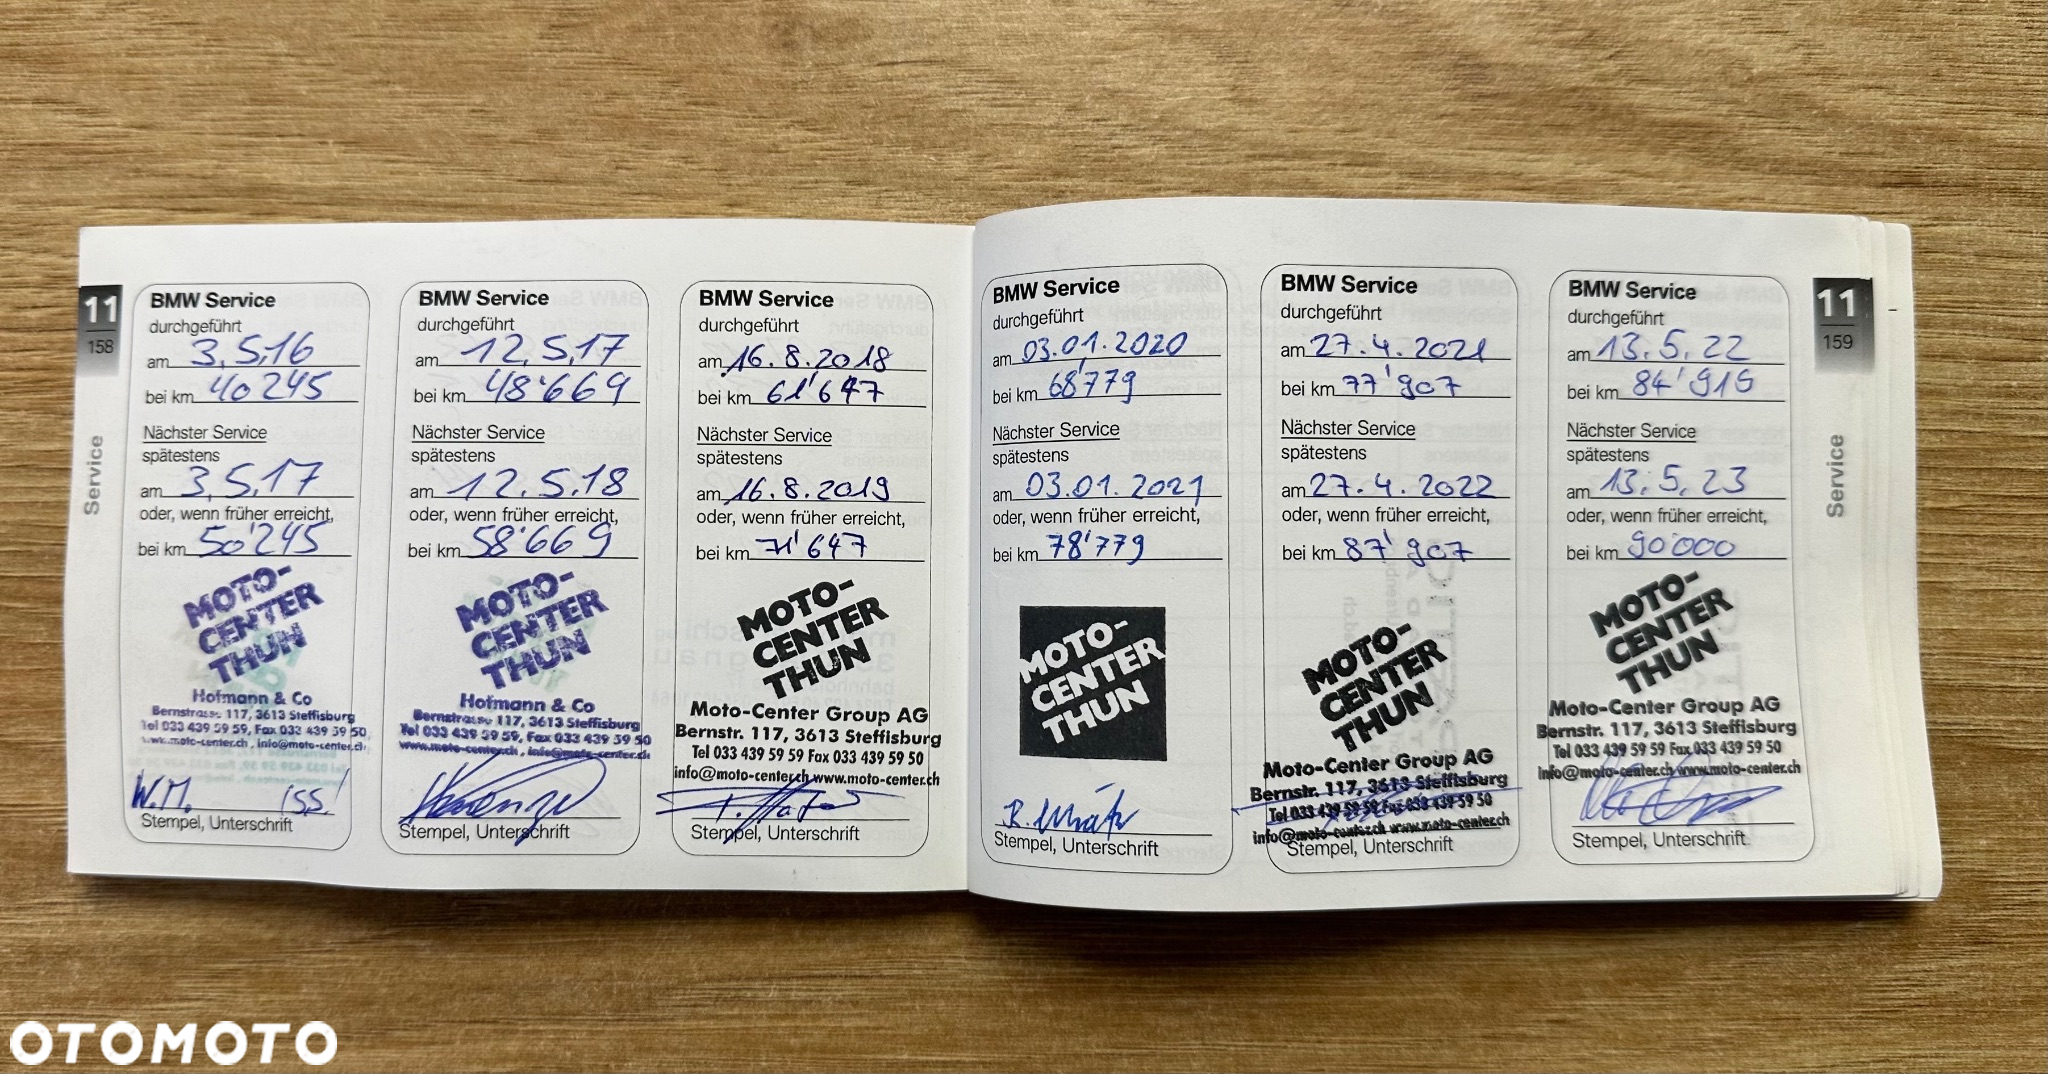 11
158
Service
BMW Service
durchgeführt
am 3.5.16
bei km 40245
Nächster Service
spätestens
am 3.5.17
oder, wenn früher erreicht,
bei km 50'245
MOTO-
CENTER
THUN
Hofmann & Co
Bernstrasse 117, 3613 Steffisburg
Tel 033 439 59 59, Fax 033 439 59 50
www.moto-center.ch, info@moto-center.ch
W.M.
Stempel, Unterschrift
BMW Service
durchgeführt
am 12.5.17
bei km 48'669
Nächster Service
spätestens
am 12.5.18
oder, wenn früher erreicht,
bei km 58'669
MOTO-
CENTER
THUN
Hofmann & Co
Bernstrasse 117, 3613 Steffisburg
Tel 033 439 59 59, Fax 033 439 59 50
www.moto-center.ch, info@moto-center.ch
Stempel, Unterschrift
BMW Service
durchgeführt
am 16.8.2018
bei km 61'647
Nächster Service
spätestens
am 16.8.2019
oder, wenn früher erreicht,
bei km 71'647
MOTO-
CENTER
THUN
Moto-Center Group AG
Bernstr. 117, 3613 Steffisburg
Tel 033 439 59 59 Fax 033 439 59 50
info@moto-center.ch www.moto-center.ch
Stempel, Unterschrift
BMW Service
durchgeführt
am 03.01.2020
bei km 68'779
Nächster Service
spätestens
am 03.01.2021
oder, wenn früher erreicht,
bei km 78'779
MOTO-
CENTER
THUN
Stempel, Unterschrift
BMW Service
durchgeführt
am 27.4.2021
bei km 77'907
Nächster Service
spätestens
am 27.4.2022
oder, wenn früher erreicht,
bei km 87'907
MOTO-
CENTER
THUN
Moto-Center Group AG
Bernstr. 117, 3613 Steffisburg
Tel 033 439 59 59 Fax 033 439 59 50
info@moto-center.ch www.moto-center.ch
Stempel, Unterschrift
BMW Service
durchgeführt
am 13.5.22
bei km 84'919
Nächster Service
spätestens
am 13.5.23
oder, wenn früher erreicht,
bei km 90'000
MOTO-
CENTER
THUN
Moto-Center Group AG
Bernstr. 117, 3613 Steffisburg
Tel 033 439 59 59 Fax 033 439 59 50
info@moto-center.ch www.moto-center.ch
Stempel, Unterschrift
11
159
Service
OTOMOTO